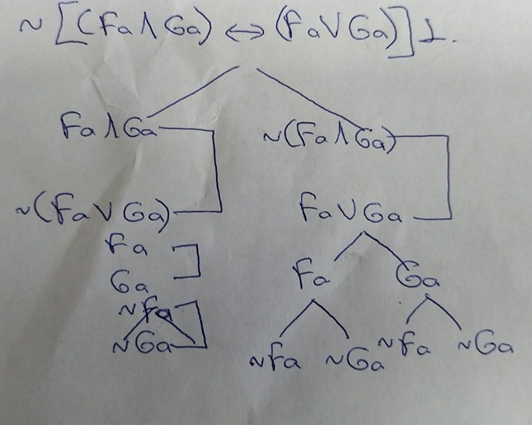 ~[(Fa∧Ga)↔(Fa∨Ga)]⊥.
Fa∧Ga ~(Fa∧Ga)
~(Fa∨Ga) Fa∨Ga
Fa
Ga Fa Ga
~Fa
~Ga ~Fa ~Ga ~Fa ~Ga